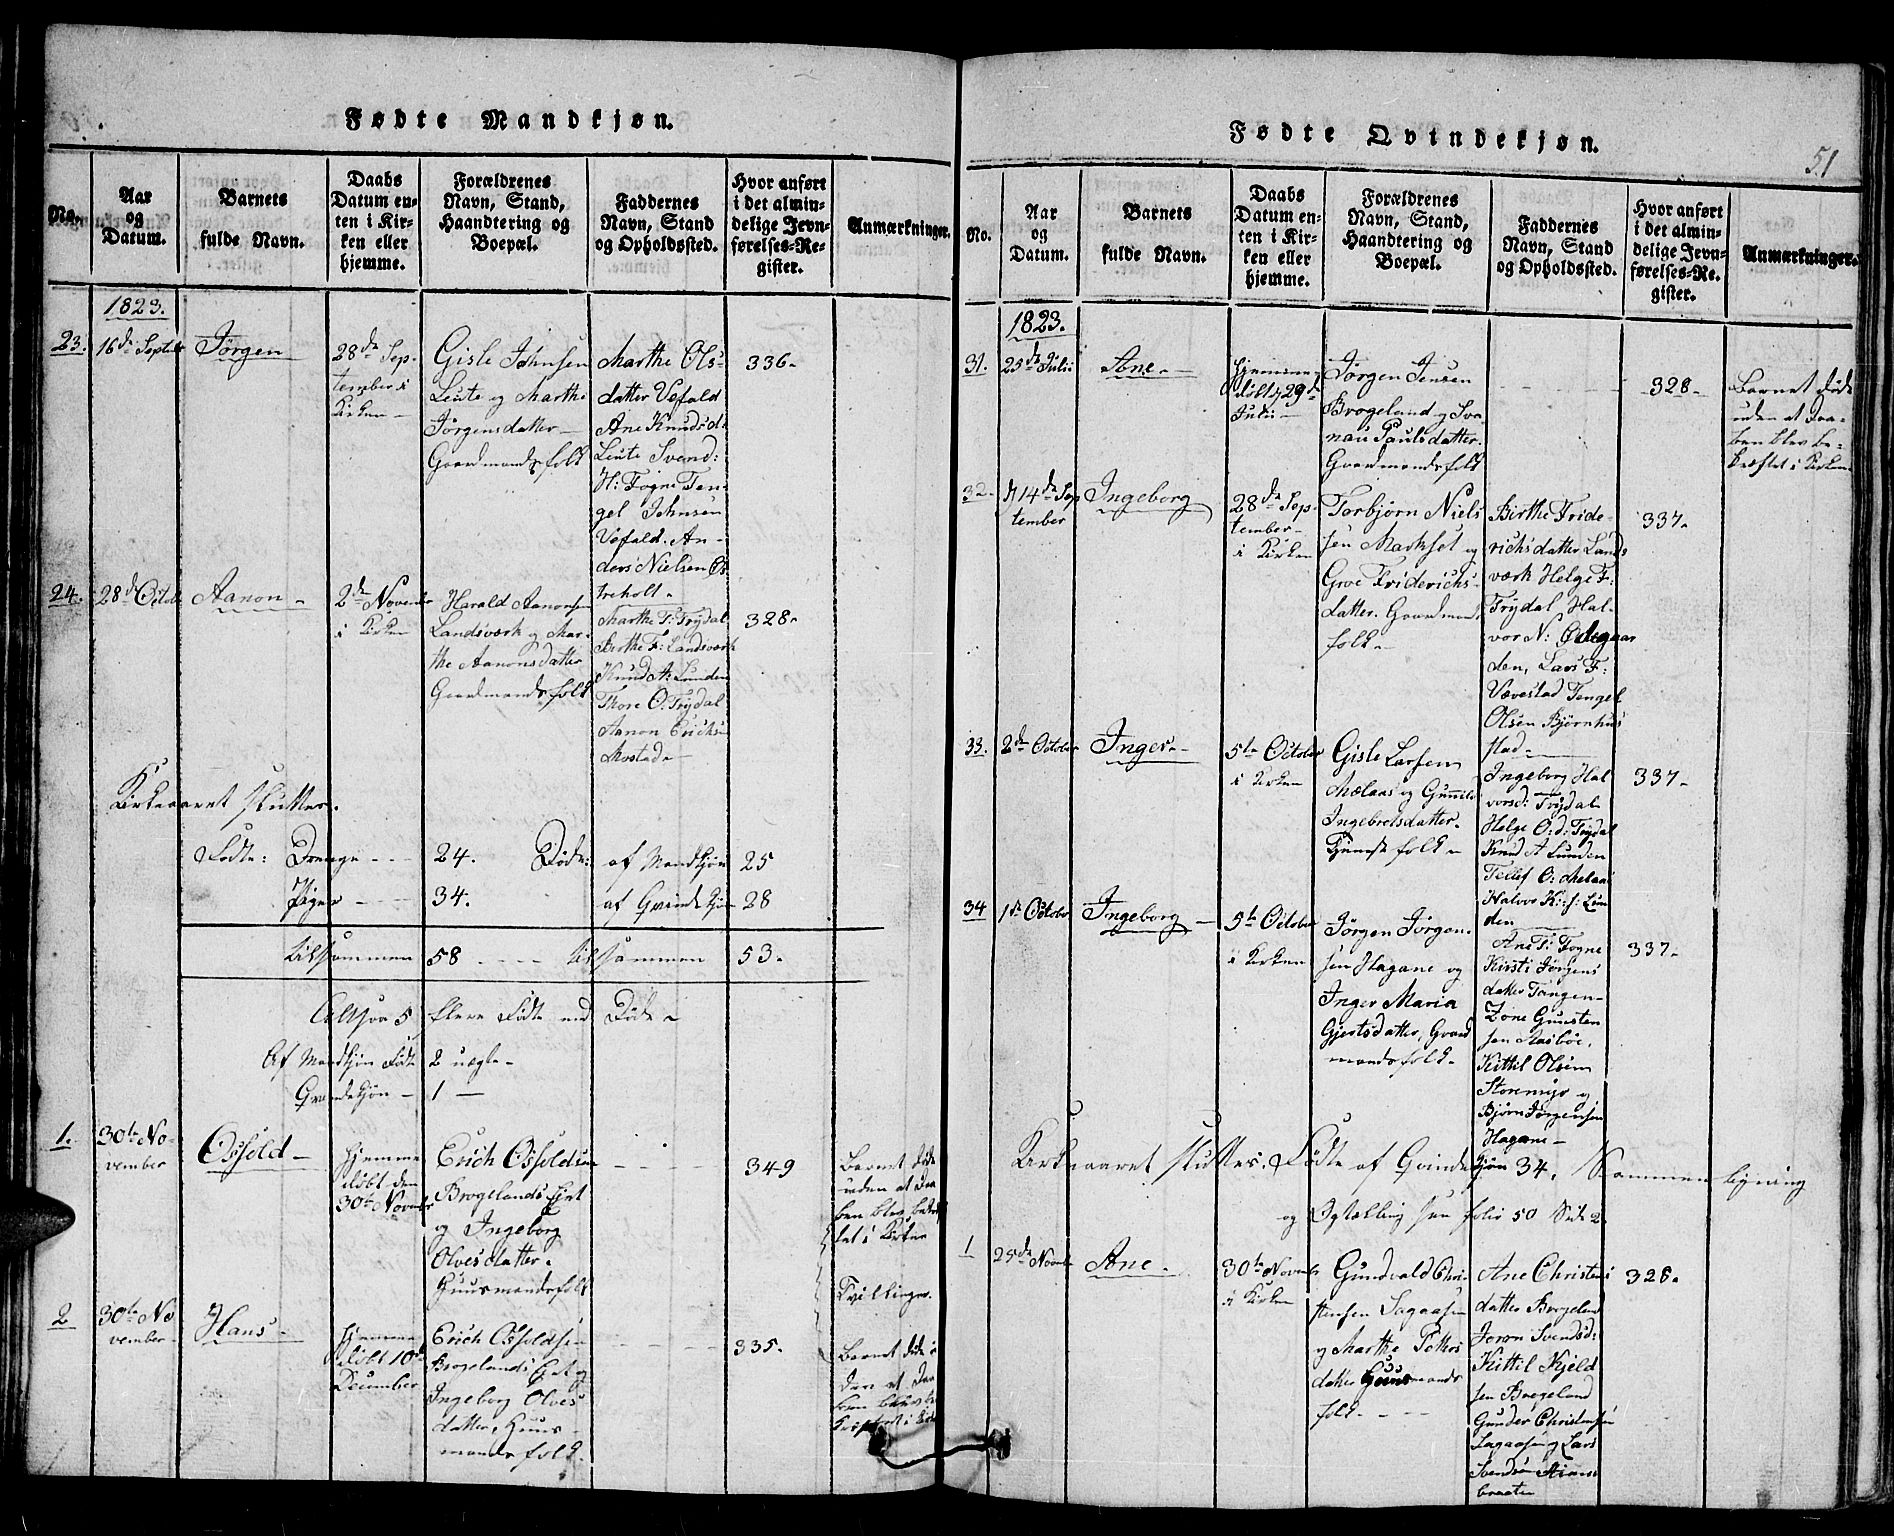 Fødte Mandkjøn.
No.
Aar
og
Datum.
Barnets
fulde Navn.
Daabs
Datum en-
ten i Kir-
ken eller
hjemme.
Forældrenes
Navn, Stand,
Haandtering og
Boepæl.
Faddernes
Navn, Stand
og Opholdssted.
Hvor anført
i det almin-
delige Jevn-
førelses-Re-
gister.
Anmærkninger.
1823.
23.
16de Septbr
Jörgen
28de Sep-
tember i
Kirken
Gisle Johnsen
Leute og Marthe
Jörgensdatter
Gaardmandsfolk
Marthe Ols-
datter Vefald
Ane Knudsd:
Leute Svend:
H: Togne Ten-
gel Johnsen
Vefald. An-
ders Nielsen Øs-
treholt
336.
24.
28de Octob:
Aanon
2de Novembr
i Kirken
Harald Aanonsen
Landsværk og Mar-
the Aanonsdatter
Gaardmandsfolk
Marthe T: Trydal
Berthe F: Landsværk
Knud A: Lunden
Thore O: Trydal
Aanon Erichs:
Mostad
328.
Kirkeaaret slutter.
Födte: Drenge 24. Döde: af Mandkjön 25
Piger 34. af Qvindekjön 28
tilsammen 58 tilsammen 53.
Altsaa 5 flere Födte end Döde
Af Mandkjön Födte 2 uægte
Qvindekjön 1
1.
30te No-
vember
Osfold
hjemme
döbt den
30te Novembr
Erich Osfoldsen
Brogelands Eiet
og Ingeborg
Olvesdatter.
Huusmandsfolk
349
Barnet döde
uden at Daa
ben blev bekræf
tet i Kirken
Tvillinger.
2
30te No
vember
Hans
hjemme
döbt 10de
December
Erich Osfoldsen
Brogelands Eiet og
Ingeborg Olves
datter, Huus-
mandsfolk.
335.
Barnet döde u
den at Daa
ben blev be
kræftet i Kirk
Fødte Qvindekjøn.
51
No.
Aar
og
Datum.
Barnets
fulde Navn.
Daabs
Datum en-
ten i Kir-
ken eller
hjemme.
Forældrenes
Navn, Stand,
Haandtering og
Boepæl.
Faddernes
Navn, Stand
og Opholdssted.
Hvor anført
i det almin-
delige Jevn-
førelses-Re-
gister.
Anmærkninger.
1823.
31.
25de Julii
Ane
hjemme
döbt 29de
Julii
Jörgen Jensen
Brogeland og Sva-
nau Paulsdatter.
Gaardmandsfolk
328
Barnet döde
uden at Daa-
ben blev be-
kræftet i Kirken
32.
14de Sep
tember
Ingeborg
28de Sep-
tember
i Kirken
Torbjörn Niels
sen Markset og
Groe Friderichs-
datter. Gaardmands
folk
Birthe Fride-
richsdatter Lands
værk Helge F:
Trydal, Hal-
vor N: Ødegaar
den, Lars F:
Vævestad Tengel
Olsen Björnhus
stad
337.
33.
2de October
Inger
5te October
i Kirken
Gisle Larsen
Melaas og Gunnild
Ingebretsdatter.
folk
Ingeborg Hal
vorsd: Trydal
Helge O:d: Trydal
Knud A Lunden
Tellef O: Melaas
Halvor K:s: Lun
den
337
34
1ste October
Ingeborg
5te October
i Kirken
Jörgen Jörgen-
sen Hagane og
Inger Maria
Gjertsdatter, Gaard
mandsfolk.
Ane T: Togne
Kirsti Jörgens
datter Tangen
Zone Gunsten
sen Aasböe.
Kittil Olsen
Storemyr og
Björn Jörgensen
Hagane
337.
Kirkeaaret slutter. Födte af Qvindekjön 34. Sammenligning
og Optælling see folio 50 Side 2
1
25de Novbr
Ane.
30te Novembr
i Kirken
Gundvald Chri-
stensen Sagaasen
og Marthe Petters
datter Huusmands
folk.
Ane Christens
datter Brogeland
Joron Svendsd:
Kittil Kjeld
sen Brogeland
Gunder Christensen
Sagaasen og Lars
Svendsen
braaten
326.